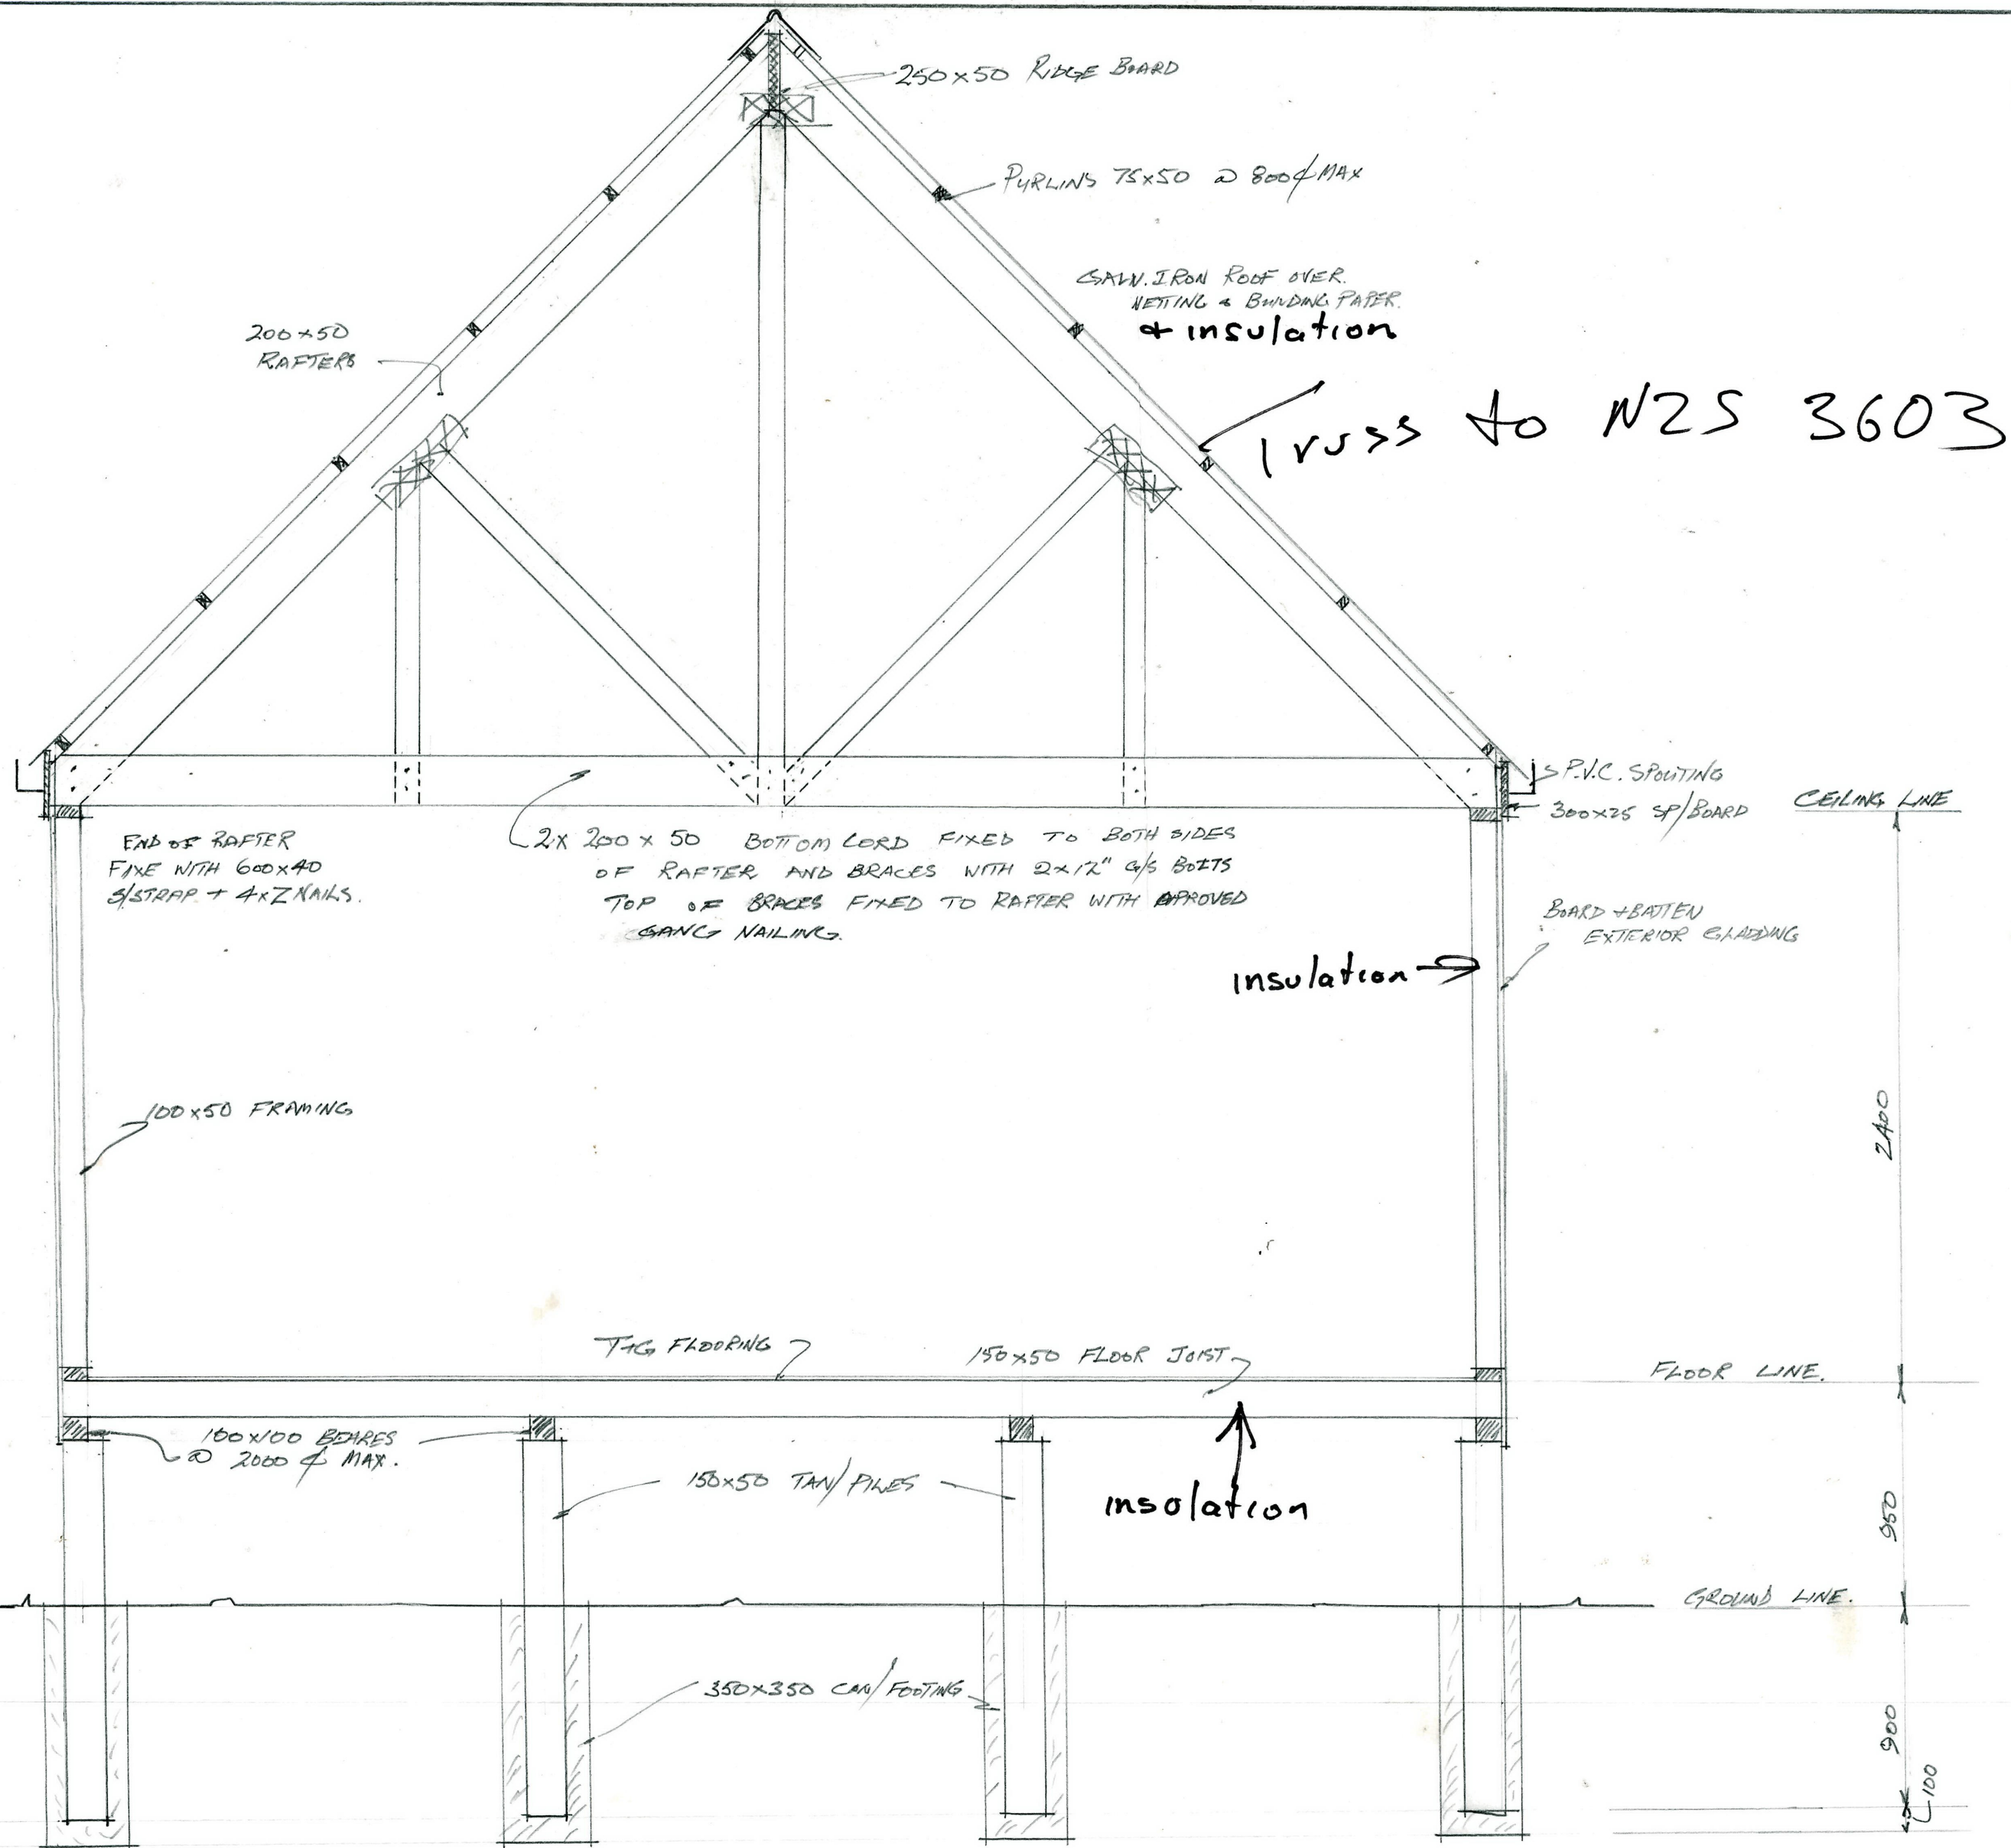 250x50 RIDGE BOARD
PURLINS 75x50 @ 800 ¢ MAX
GALV. IRON ROOF OVER.
NETTING & BUILDING PAPER.
+ insulation
200x50
RAFTERS
Truss to NZS 3603
P.V.C. SPOUTING
300x25 SP/BOARD
CEILING LINE
END OF RAFTER
FIXE WITH 600x40
S/STRAP + 4xZ NAILS.
2x 200 x 50 BOTTOM CORD FIXED TO BOTH SIDES
OF RAFTER AND BRACES WITH 2x12" G/S BOLTS
TOP OF BRACES FIXED TO RAFTER WITH APPROVED
GANG NAILING.
BOARD + BATTEN
EXTERIOR CLADDING
insulation
100x50 FRAMING
2400
T+G FLOORING
150x50 FLOOR JOIST
FLOOR LINE.
100x100 BEARES
@ 2000 ¢ MAX.
150x50 TAN/PILES
insolation
950
GROUND LINE.
350x350 CON/FOOTING
900
100